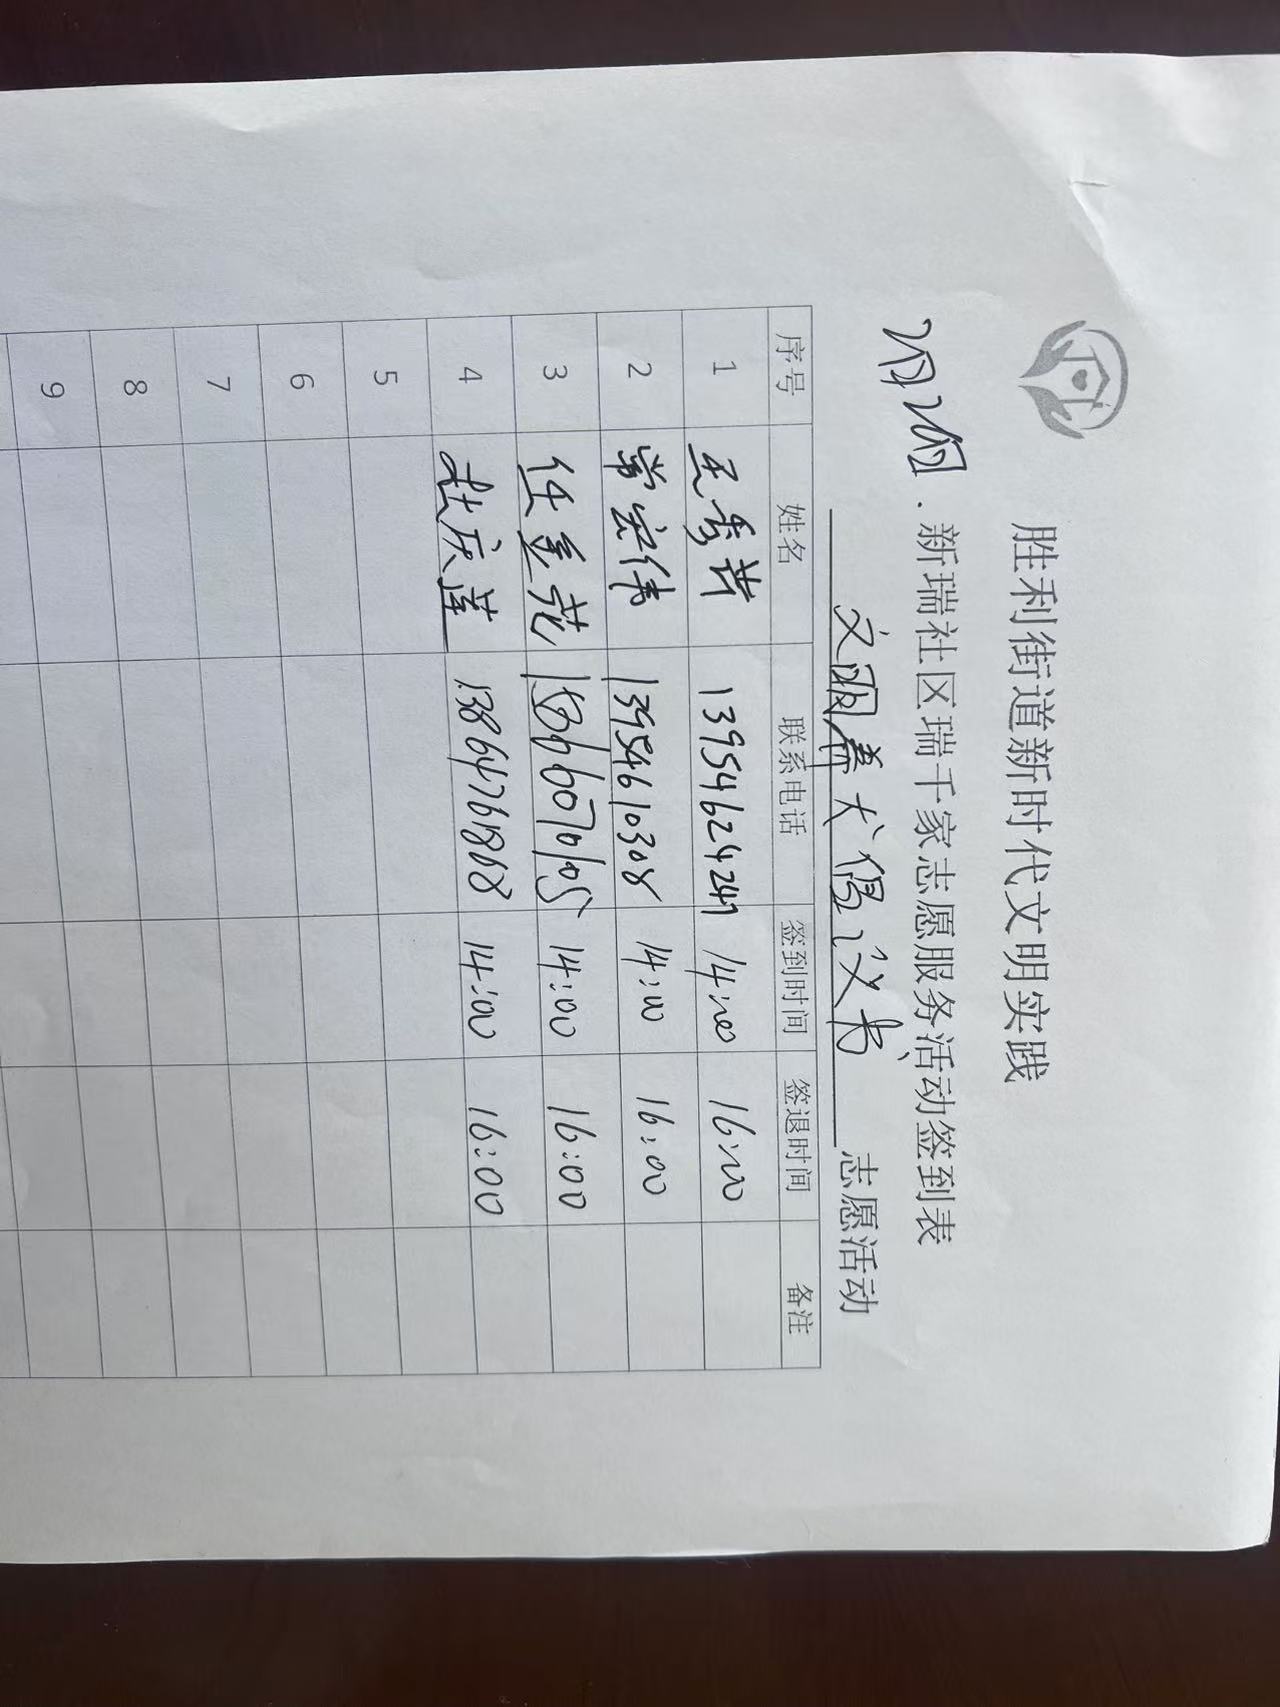 胜利街道新时代文明实践
新瑞社区瑞千家志愿服务活动签到表
文明养犬倡议书 志愿活动
序号 姓名 联系电话 签到时间 签退时间 备注
1 13954624247 14:00 16:00
2 常宏伟 13954610308 14:00 16:00
3 任金花 14:00 16:00
4 赵庆莲 13864761868 14:00 16:00
5
6
7
8
9